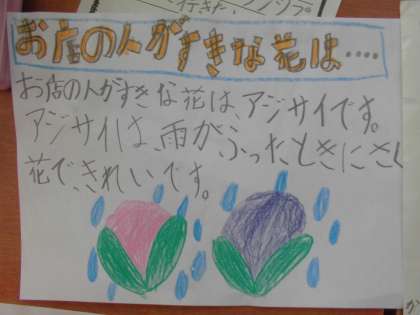 行きた
お店の人がすきな花は‥‥
お店の人がすきな花は、アジサイです。
アジサイは、雨がふったときにさく
花で、きれいです。